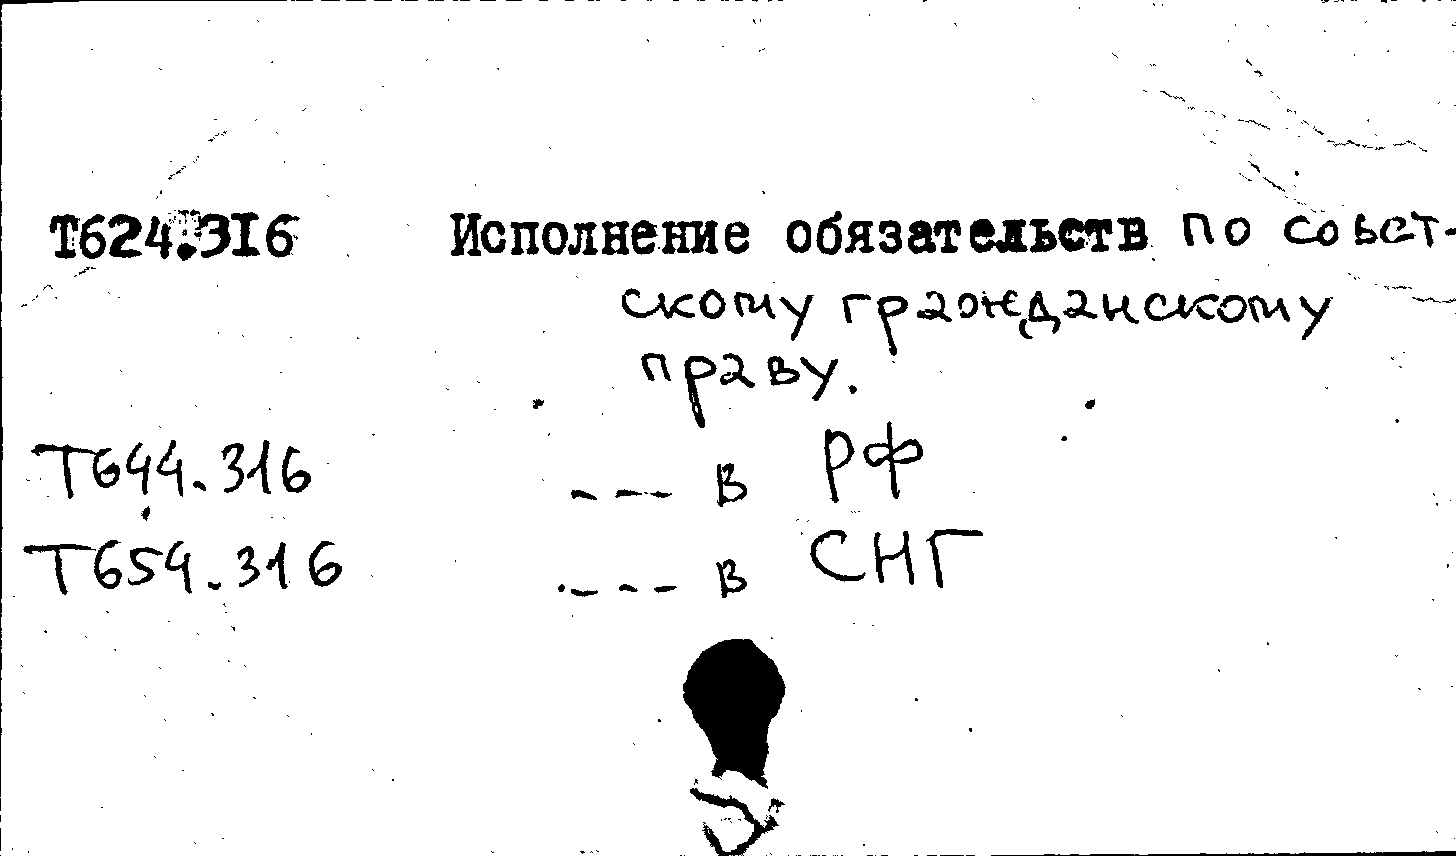 Т624.3I6 Исполнение обязательств по совет-
скому гражданскому
праву.
Т644.316 --- в РФ
Т654.316 --- в СНГ